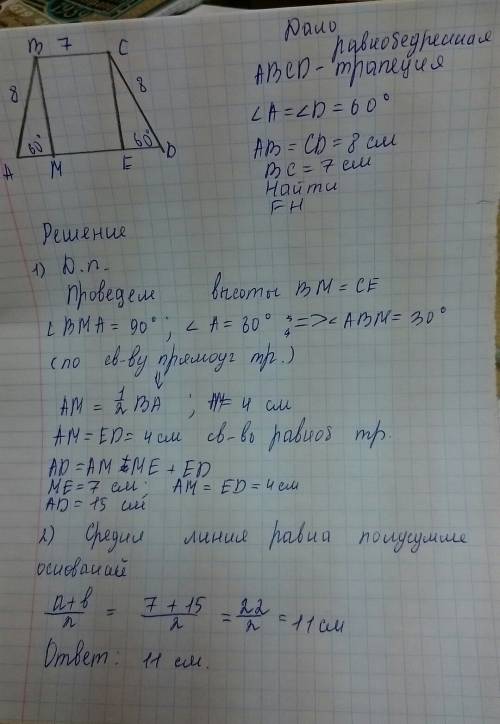 B 7 C
8 8
60° 60°
A M E D
Дано
равнобедренная
ABCD - трапеция
∠A = ∠D = 60°
AB = CD = 8 см
BC = 7 см
Найти
FH
Решение
1) Д.п.
Проведем высоты BM = CE
∠BMA = 90° ; ∠A = 60° => ∠ABM = 30°
(по св-ву прямоуг тр.)
AM = 1/2 BA ; = 4 см
AM = ED = 4 см св-во равноб тр.
AD = AM + ME + ED
ME = 7 см. AM = ED = 4 см
AD = 15 см
2) Средия линия равна полусумме
оснований
a+b/2 = 7+15/2 = 22/2 = 11 см
Ответ: 11 см.